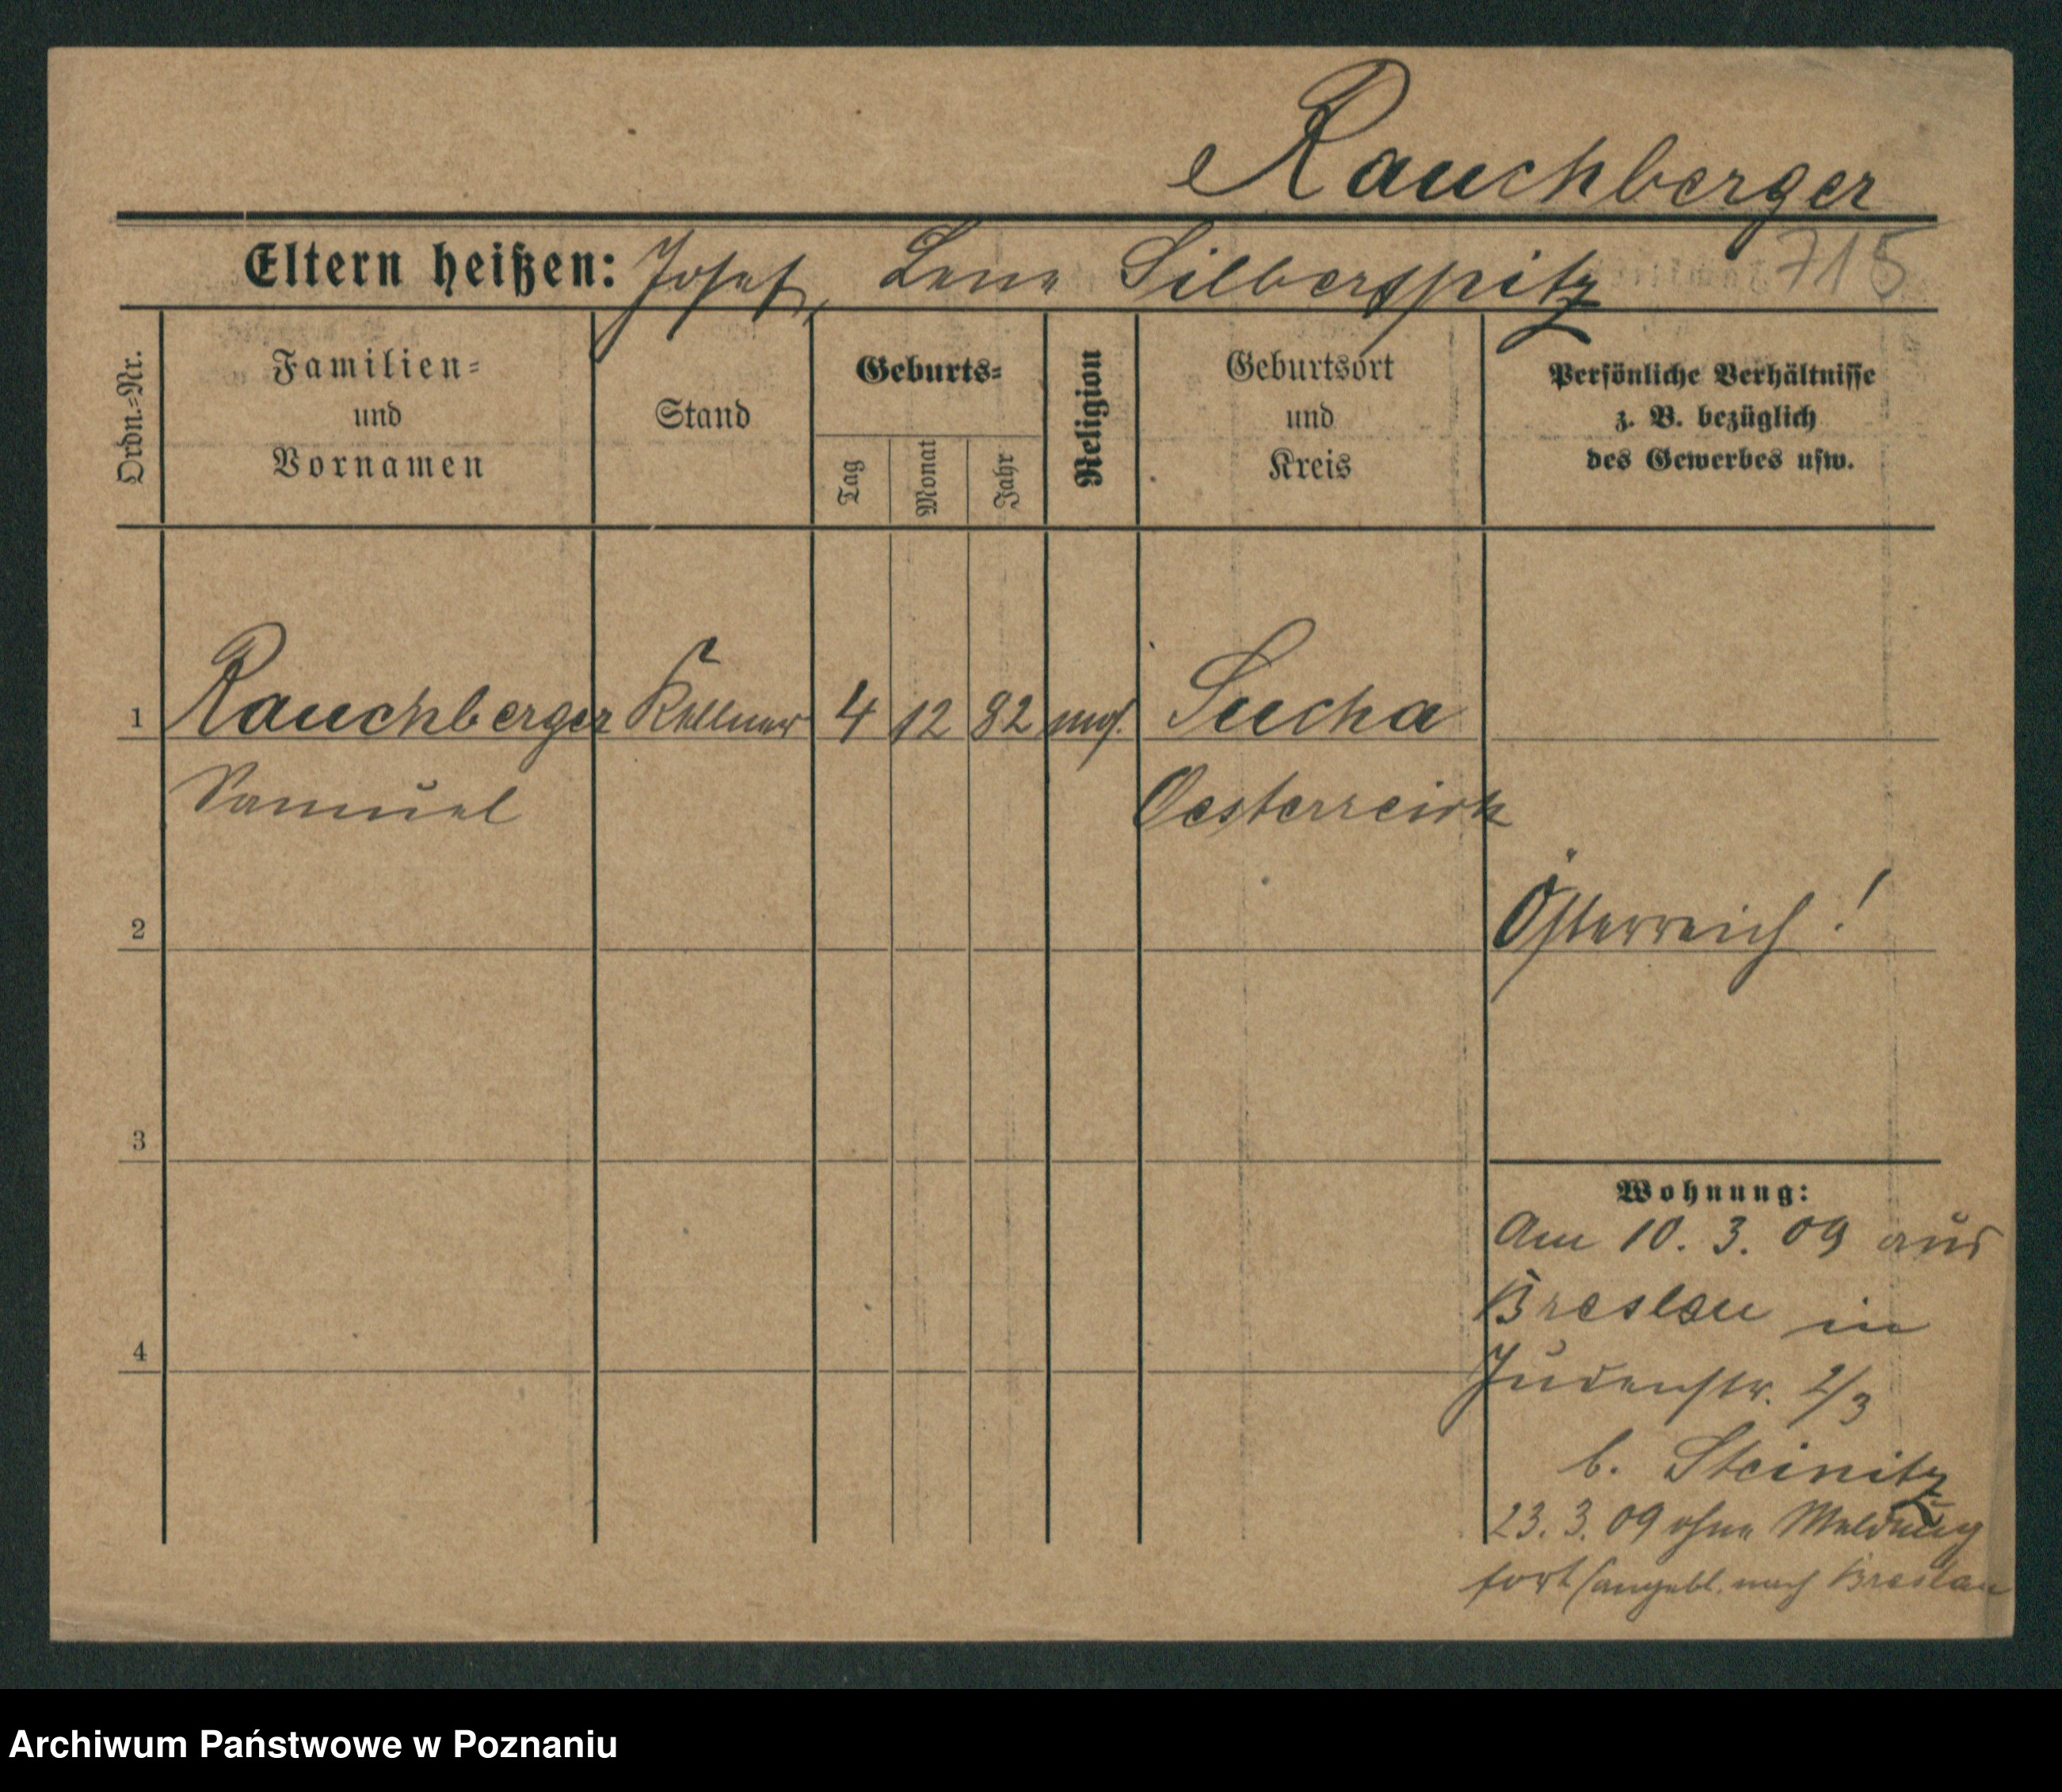 Rauchberger
Eltern heißen: Josef, Lene Silberspitz 715
Ordn.-Nr.
Familien-
und
Vornamen
Stand
Geburts-
Tag
Monat
Jahr
Religion
Geburtsort
und
Kreis
Persönliche Verhältnisse
z. B. bezüglich
des Gewerbes usw.
1 Rauchberger Kellner 4 12 82 mos. Sucha
Samuel Oesterreich
2 Österreich!
3
Wohnung:
Am 10. 3. 09 aus
Breslau in
4
Judenstr. 2/3
b. Steinitz
23. 3. 09 ohne Meldung
fort (angebl. nach Breslau
Archiwum Państwowe w Poznaniu